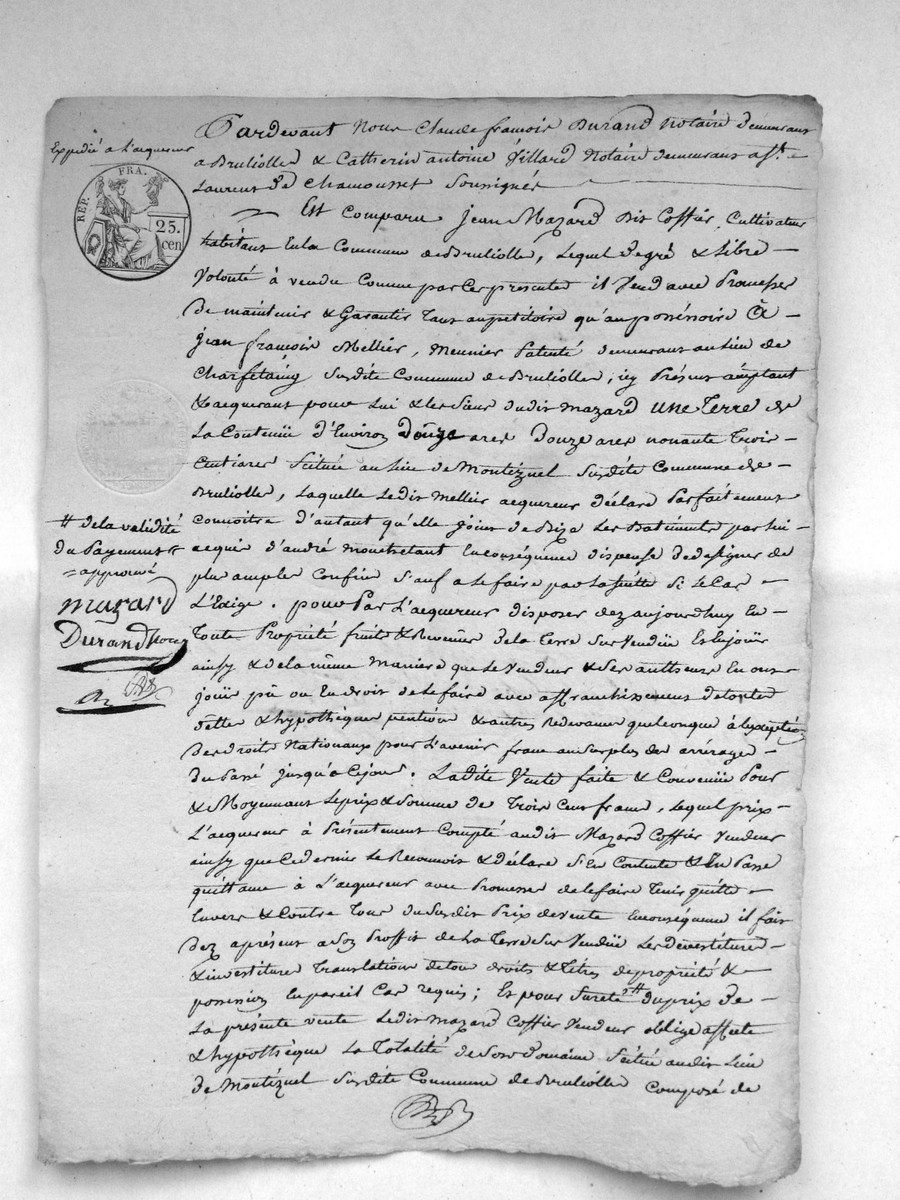 Pardevant Nous Claude françois Durand Notaire demeurant
a Brullolles & Catherin antoine Villard Notaire demeurant a St.
Laurent de Chamousset Soussignés
Expedié a l'acquereur
RÉP. FRA.
25.
cen
Est Comparu Jean Mazard dit Coffier, Cultivateur
habitant en la Commune de Brullolle, Lequel de gré & Libre
Volonté à vendu Comme par Ces presentes il Vend avec Promesse
de maintenir & Garantir tant au petitoire qu'au possessoire à
jean françois Mellier, Meunier Patenté demeurant au lieu de
Charfetaing Susdite Commune de Brullolle, icy Présent acceptant
& acquerant pour Lui & les Siens dudit mazard une Terre de
La Contenüe d'Environ douze ares Douze ares nonante Trois
Centiares Scituée au lieu de Montézuel Susdite Commune de
Brullolle, Laquelle Ledit Mellier acquereur déclare Parfaitement
Connoitre d'autant qu'elle joint de Bize Les Batiments par lui
acquis d'andré en Conséquence dispense de designer de
plus amples Confins Sauf a le faire par la Suitte Si le Cas
L'Exige. pour Par L'acquereur disposer dez aujourdhuy En
Toute Propriété fruits & Revenus de la terre Sus Venduë & En joüir
ainsy & de la même maniere que le Vendeur & Ses autheurs En ont
joüir pû ou En droit de le faire avec affranchissement de toutes
dettes & hypothèques pentions & autres redevances quelconque à l'exception
des droits Nationaux pour l'avenir franc au Surplus des arrérages
du Passé jusqu'à Ce jour. La dite Vente faite & Convenüe Pour
& Moyennant Le prix & Somme de Trois Cent francs, Lequel prix
L'acquereur à Présentement Compté audit Mazard Coffier Vendeur
ainsy que Ce dernier Le Reconnoit & déclare S'en Contente & En Passe
quittance à L'acquereur avec Promesse de le faire Tenir quitte
Envers & Contre Tous du Susdit Prix de vente En conséquence il fait
dez apresent a Son Proffit de La Terre Sus Venduë Les dévestitures
& investitures Translations de tous droits & Titres de propriété &
possession le pareil Cas requis; Et pour Sureté # du prix de
La présente vente Ledit Mazard Coffier Vendeur oblige affecte
& hypothèque La Totalité de Son Domaine Scitué audit Lieu
de Montézuel Susdite Commune de Brullolle Composé de
# de la validité
du Payement &
approuvé
mazard
Durand Nore